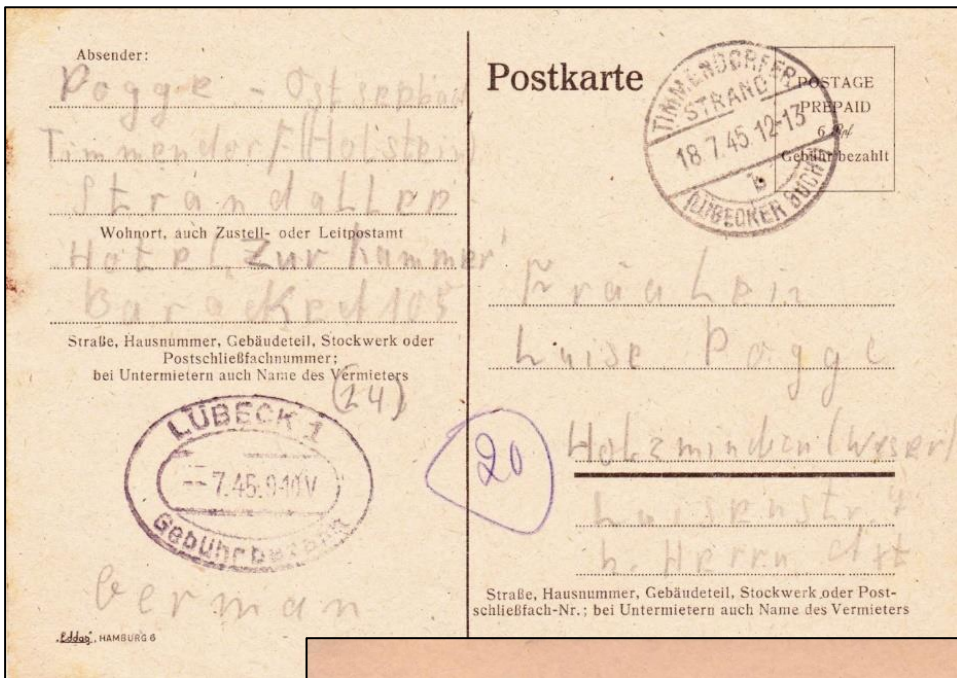 Absender:
Pogge - Ostseebad
Timmendorf (Holstein)
Strandallee
Wohnort, auch Zustell- oder Leitpostamt
Hotel, Zur Kammer'
Baracke
Straße, Hausnummer, Gebäudeteil, Stockwerk oder
Postschließfachnummer;
bei Untermietern auch Name des Vermieters
(24)
LÜBECK 1
7.45.
Gebühr bezahlt
German
"Eddag", HAMBURG 6
Postkarte
TIMMENDORFER
STRAND
18.7.45.12-13
b
(LÜBECKER BUCHT)
POSTAGE
PREPAID
6
Gebühr bezahlt
Fräulein
Luise Pogge
20
Holzminden (Weser)
Luisenstr.
b. Herrn
Straße, Hausnummer, Gebäudeteil, Stockwerk oder Post-
schließfach-Nr.; bei Untermietern auch Name des Vermieters